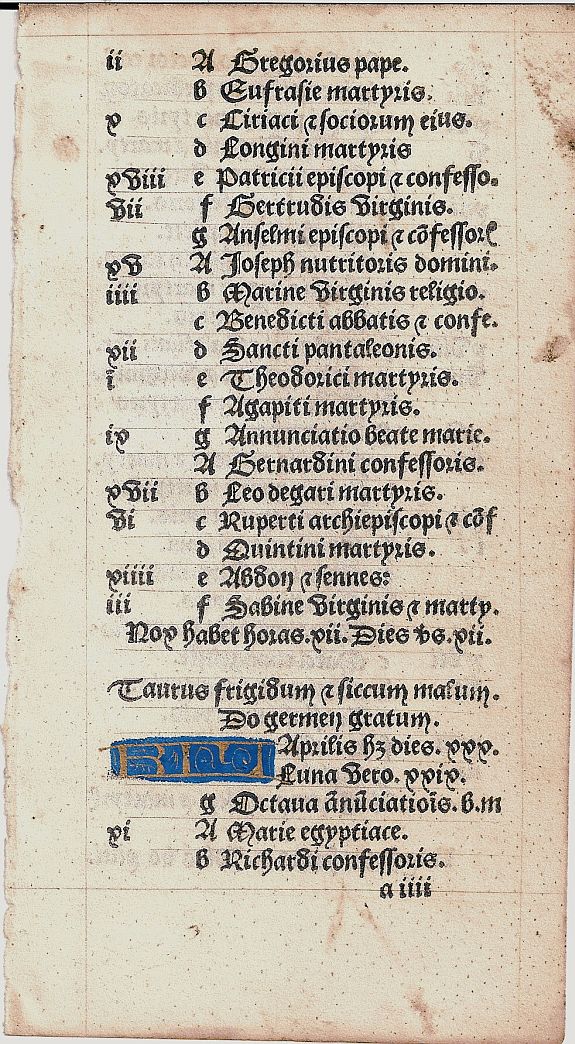 ii A Gregorius pape.
b Eufrasie martyris.
x c Ciriaci ⁊ sociorum eius.
d Longini martyris
xviii e Patricii episcopi ⁊ confesso.
vii f Gertrudis virginis.
g Anselmi episcopi ⁊ cõfessorꝭ
xv A Joseph nutritoris domini.
iiii b Marine virginis religio.
c Benedicti abbatis ⁊ confe.
xii d Sancti pantaleonis.
i e Theodorici martyris.
f Agapiti martyris.
ix g Annunciatio beate marie.
A Bernardini confessoris.
xvii b Leodegari martyris.
vi c Ruperti archiepiscopi ⁊ cõf
d Quintini martyris.
xiiii e Abdon ⁊ sennes:
iii f Sabine virginis ⁊ marty.
Nox habet horas.xii. Dies vs.xii.
Taurus frigidum ⁊ siccum malum.
Do germen gratum.
Aprilis hꝫ dies. xxx.
Luna vero. xxix.
g Octaua ãnũciatiõis. b.m
xi A Marie egyptiace.
b Richardi confessoris.
a iiii